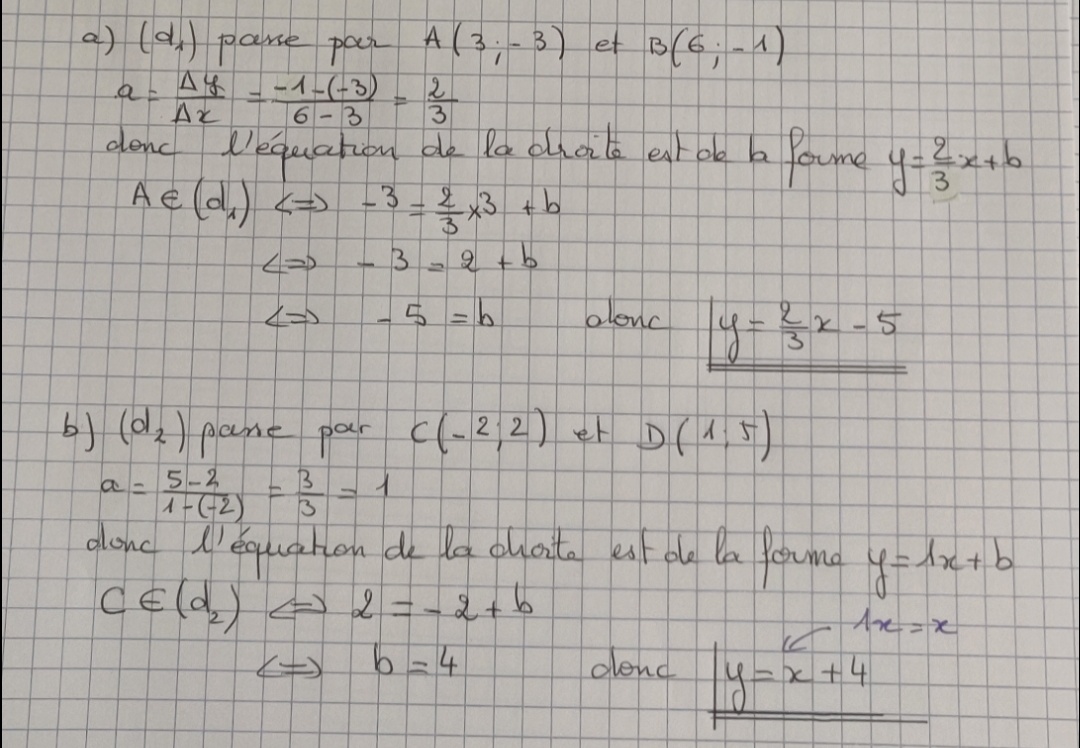 a) (d₁) passe par A(3 ; -3) et B(6 ; -1)
a = Δy/Δx = (-1-(-3))/(6-3) = 2/3
donc l'équation de la droite est de la forme y = 2/3 x + b
A ∈ (d₁) <=> -3 = 2/3 × 3 + b
<=> -3 = 2 + b
<=> -5 = b donc y = 2/3 x - 5
b) (d₂) passe par C(-2 ; 2) et D(1 ; 5)
a = (5-2)/(1-(-2)) = 3/3 = 1
donc l'équation de la droite est de la forme y = 1x + b
C ∈ (d₂) <=> 2 = -2 + b
1x = x
<=> b = 4 donc y = x + 4